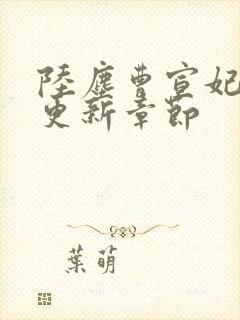 陸塵曹宣妃
更新章節
葉萌